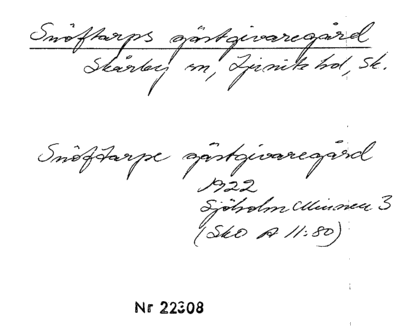 Snöftarps gästgivaregård
Skårby sn, Ljunits hd, Sk.
Snöftarps gästgivaregård
1922
Sjöholm Minnen 3
(SkO A 11:80)
Nr 22308